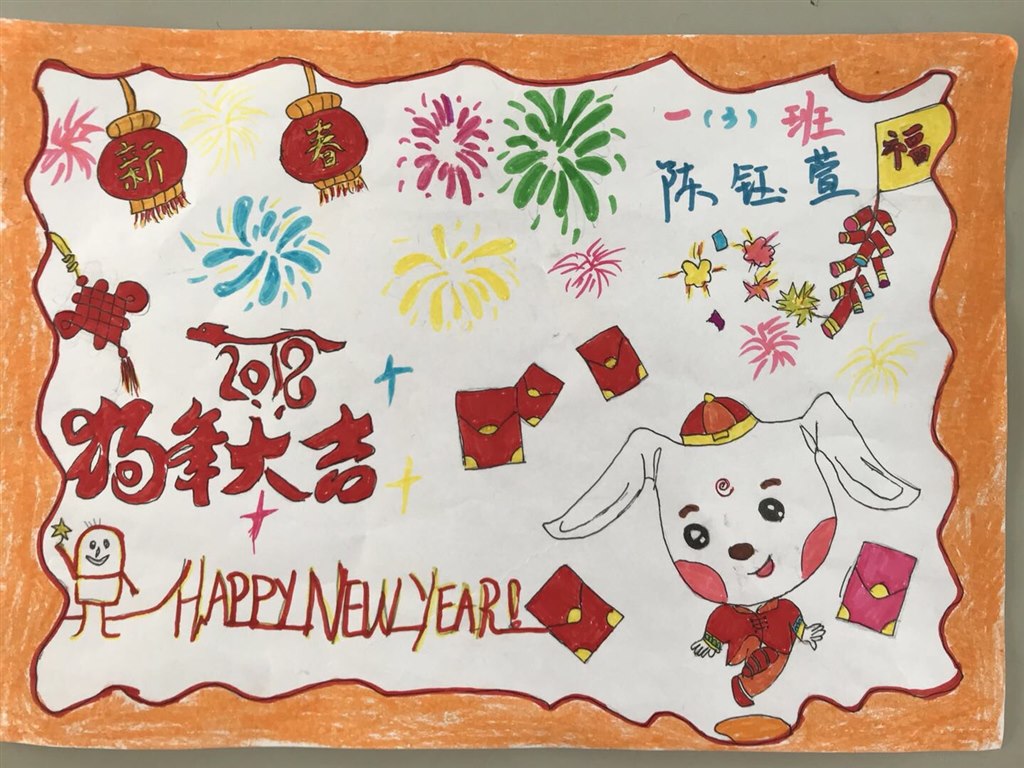 新 春
一(3)班
陈钰萱
福
2018
狗年大吉
HAPPY NEW YEAR!